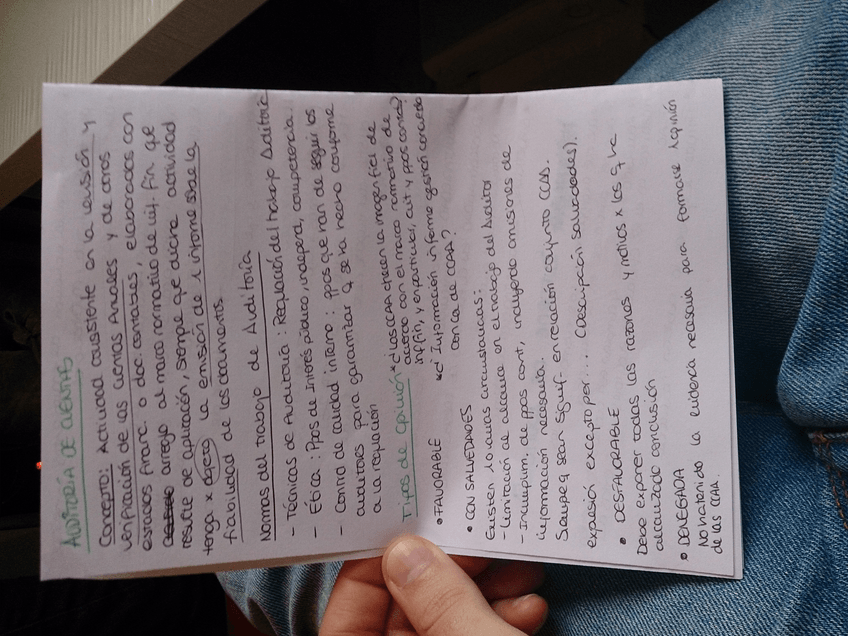 AUDITORÍA DE CUENTAS
Concepto: Actividad consistente en la revisión y
verificación de las cuentas Anuales y de otros
estados financ. o doc contables, elaborados con
arreglo al marco normativo de inf. fin que
resulte de aplicación, siempre que dicha actividad
tenga x objeto la emisión de 1 informe sobre la
fiabilidad de los documentos.
Normas del trabajo de Auditoría
- Técnicas de Auditoría: Regulación del trabajo Auditoría
- Ética: Ppos de interés público, independ, competencia.
- Control de calidad interno: ppos que han de seguir los
auditores para garantizar q se ha hecho conforme
a la regulación
Tipos de Opinión
* c/ Las CCAA dan la imagen fiel de
acuerdo con el marco normativo de
inf fin, y en particular, con ppos contes?
• FAVORABLE
*c/ Información informe gestión concuerda
con la de CCAA?
• CON SALVEDADES
Existen 1 o varias circunstancias:
- Limitación de alcance en el trabajo del Auditor
- Incumplim. de ppos cont, incluyendo omisiones de
información necesaria.
Siempre q sean signif. en relación conjunto CCAA.
expresión excepto por... (Descripción salvedades).
• DESFAVORABLE
Debe exponer todas las razones y motivos x los q ha
alcanzado conclusión
• DENEGADA
No ha tenido la evidencia necesaria para formarse 1 opinión
de las CCAA.